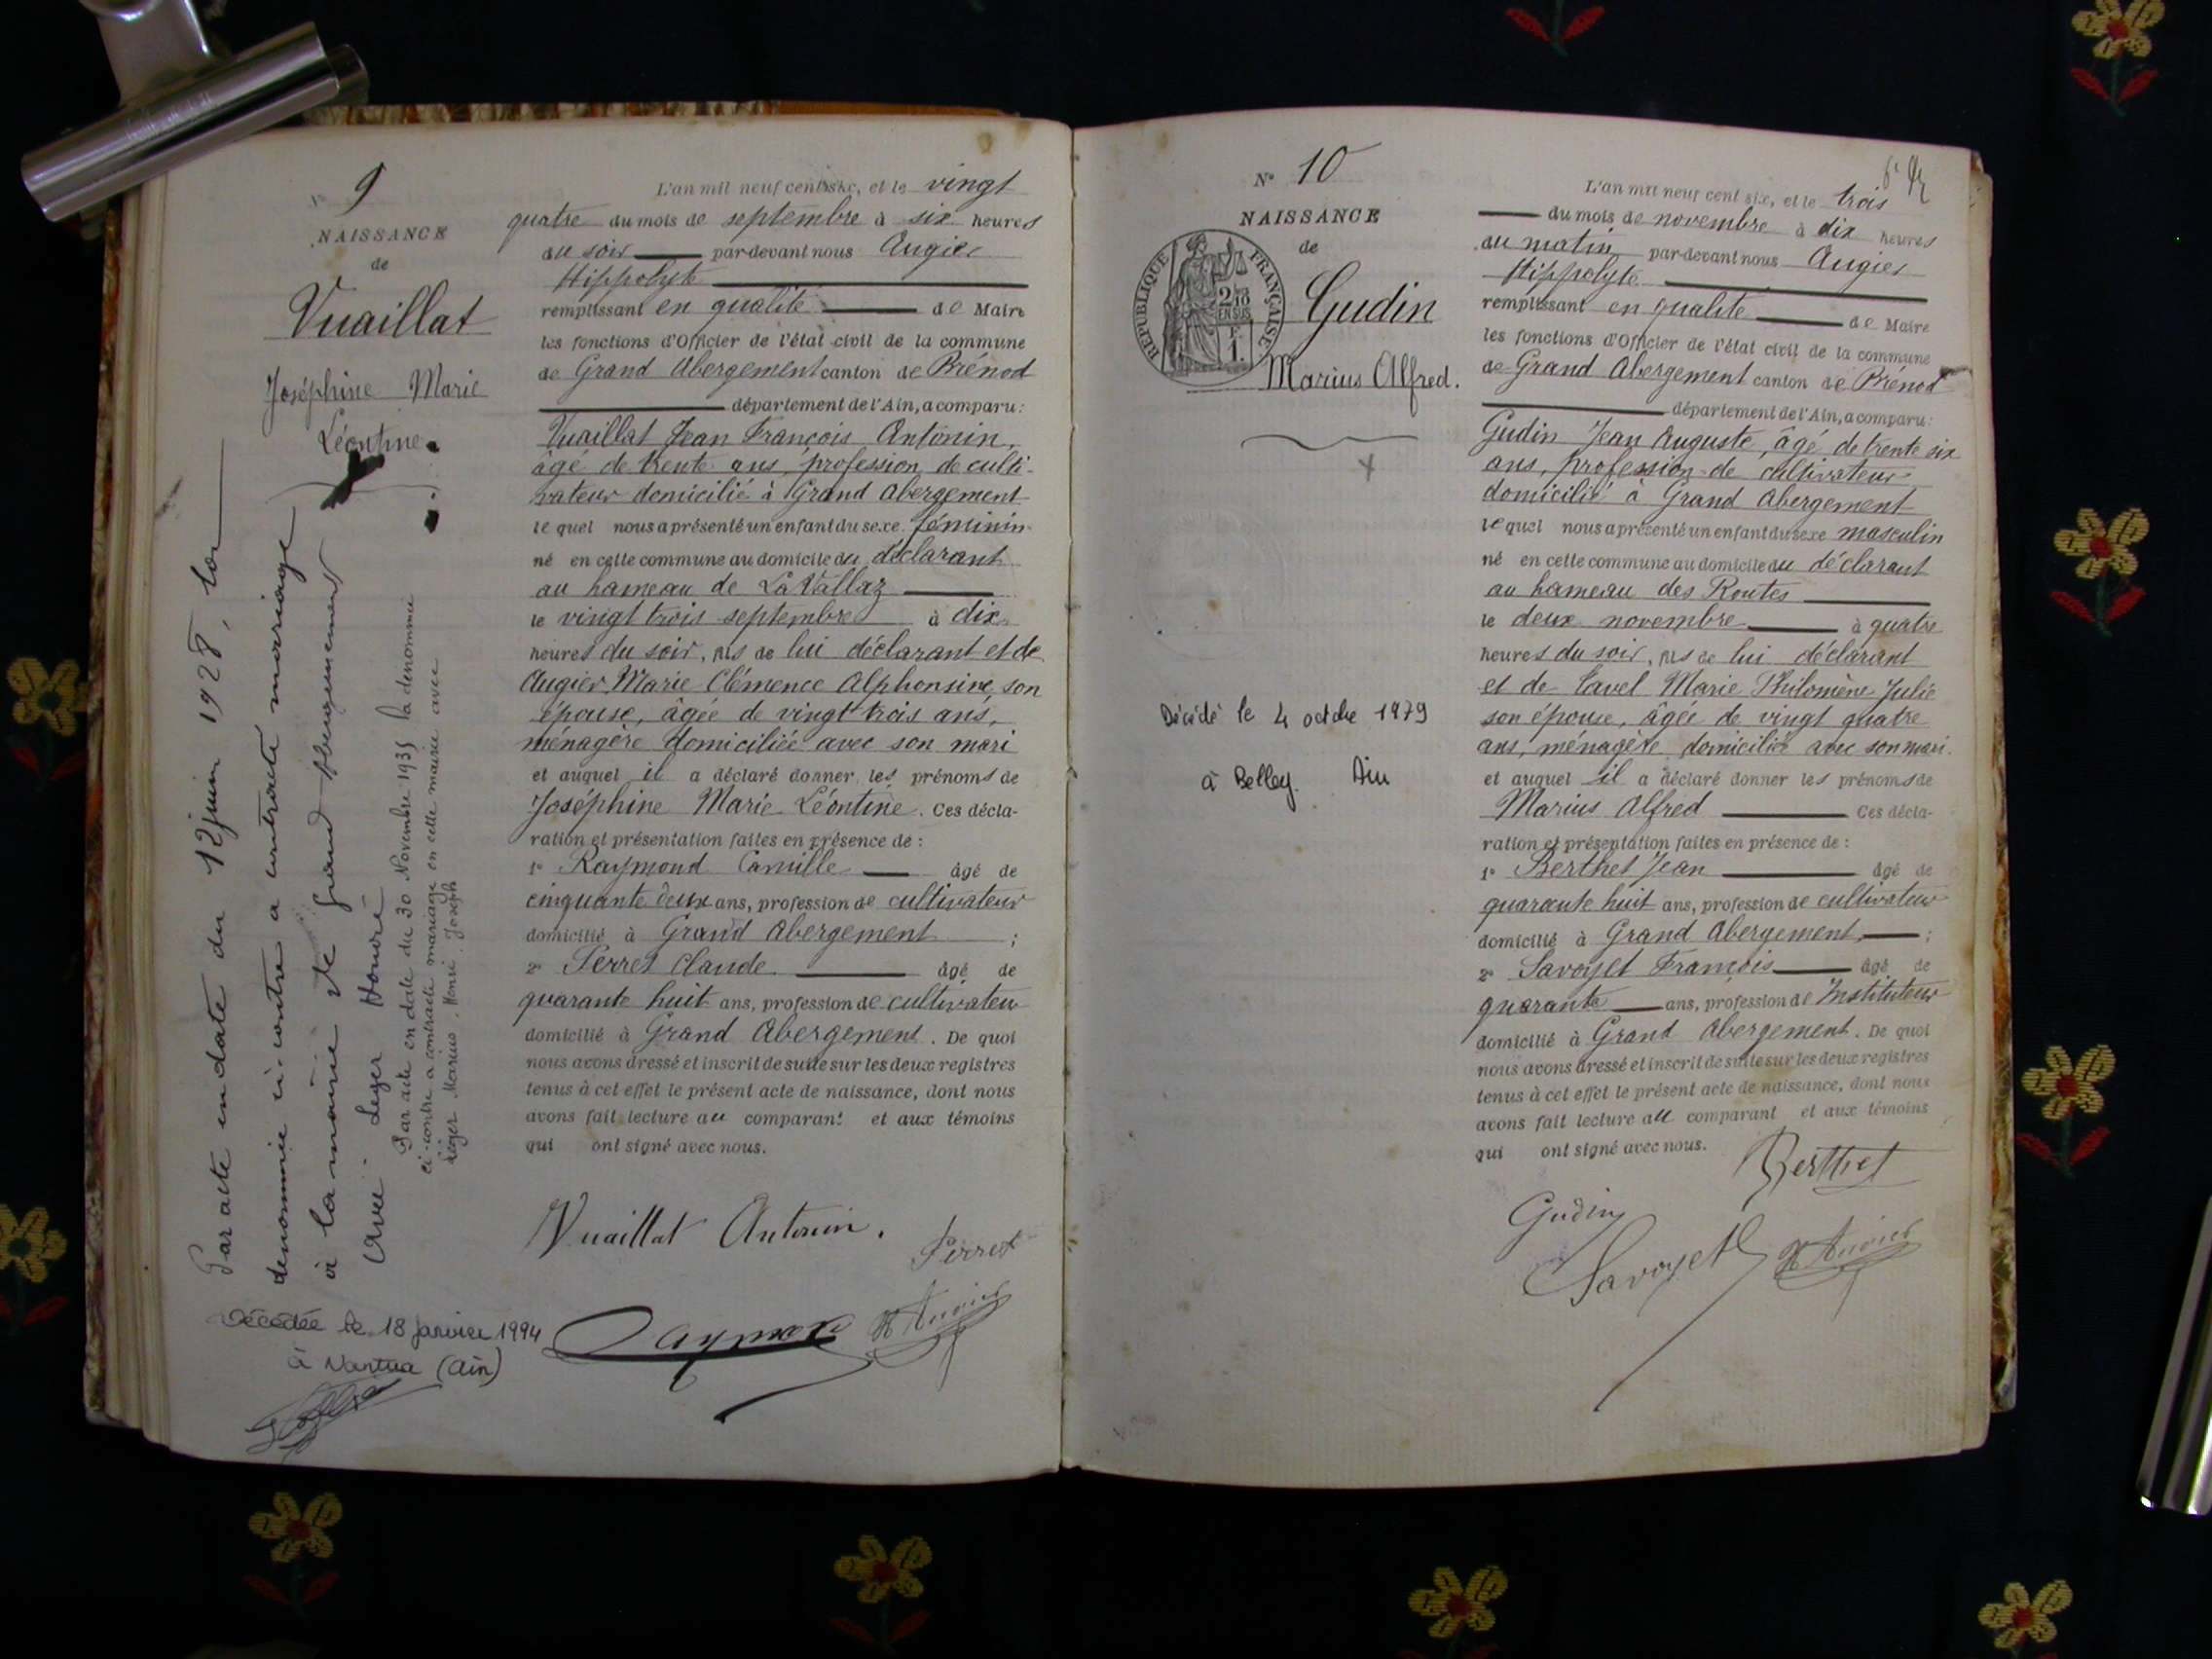 N° 9
NAISSANCE
de
Vuaillat
Joséphine Marie
Léontine.
Par acte en date du 12 juin 1928, la
dénommée ci-contre a contracté mariage
à la mairie de Grand Abergement
avec Leger Honoré
Par acte en date du 30 Novembre 1935 la dénommée
ci-contre a contracté mariage en cette mairie avec
Léger Marius, Henri, Joseph
Décédée le 18 janvier 1994
à Nantua (Ain)
L'an mil neuf cent six, et le vingt
quatre du mois de septembre à six heures
du soir par-devant nous Augier
Hippolyte
remplissant en qualité de Maire
les fonctions d'Officier de l'état civil de la commune
de Grand Abergement canton de Brénod
département de l'Ain, a comparu:
Vuaillat Jean François Antonin,
âgé de trente ans, profession de culti-
vateur domicilié à Grand Abergement
le quel nous a présenté un enfant du sexe féminin
né en cette commune au domicile du déclarant
au hameau de La Vallaz
le vingt trois septembre à dix
heures du soir, fils de lui déclarant et de
Augier Marie Clémence Alphonsine, son
épouse, âgée de vingt trois ans,
ménagère domiciliée avec son mari
et auquel il a déclaré donner les prénoms de
Joséphine Marie Léontine. Ces décla-
ration et présentation faites en présence de :
1° Raymond Camille âgé de
cinquante deux ans, profession de cultivateur
domicilié à Grand Abergement ;
2° Perret Claude âgé de
quarante huit ans, profession de cultivateur
domicilié à Grand Abergement. De quoi
nous avons dressé et inscrit de suite sur les deux registres
tenus à cet effet le présent acte de naissance, dont nous
avons fait lecture au comparant et aux témoins
qui ont signé avec nous.
Vuaillat Antonin.
Perret
Raymond
H Augier
N° 10
NAISSANCE
de
RÉPUBLIQUE FRANÇAISE
2/10
EN SUS
F.
1.
Gudin
Marius Alfred.
Décédé le 4 octobre 1979
à Belley Ain
L'an mil neuf cent six, et le trois
du mois de novembre à dix heures
du matin par-devant nous Augier
Hippolyte
remplissant en qualité de Maire
les fonctions d'Officier de l'état civil de la commune
de Grand Abergement canton de Brénod
département de l'Ain, a comparu:
Gudin Jean Auguste, âgé de trente six
ans, profession de cultivateur
domicilié à Grand Abergement
le quel nous a présenté un enfant du sexe masculin
né en cette commune au domicile du déclarant
au hameau des Routes
le deux novembre à quatre
heures du soir, fils de lui déclarant
et de Cavel Marie Philomène Julie
son épouse, âgée de vingt quatre
ans, ménagère domiciliée avec son mari.
et auquel il a déclaré donner les prénoms de
Marius Alfred Ces décla-
ration et présentation faites en présence de :
1° Berthet Jean âgé de
quarante huit ans, profession de cultivateur
domicilié à Grand Abergement ;
2° Savoyet François âgé de
quarante ans, profession de Instituteur
domicilié à Grand Abergement. De quoi
nous avons dressé et inscrit de suite sur les deux registres
tenus à cet effet le présent acte de naissance, dont nous
avons fait lecture au comparant et aux témoins
qui ont signé avec nous.
Berthet
Gudin
Savoyet
H Augier